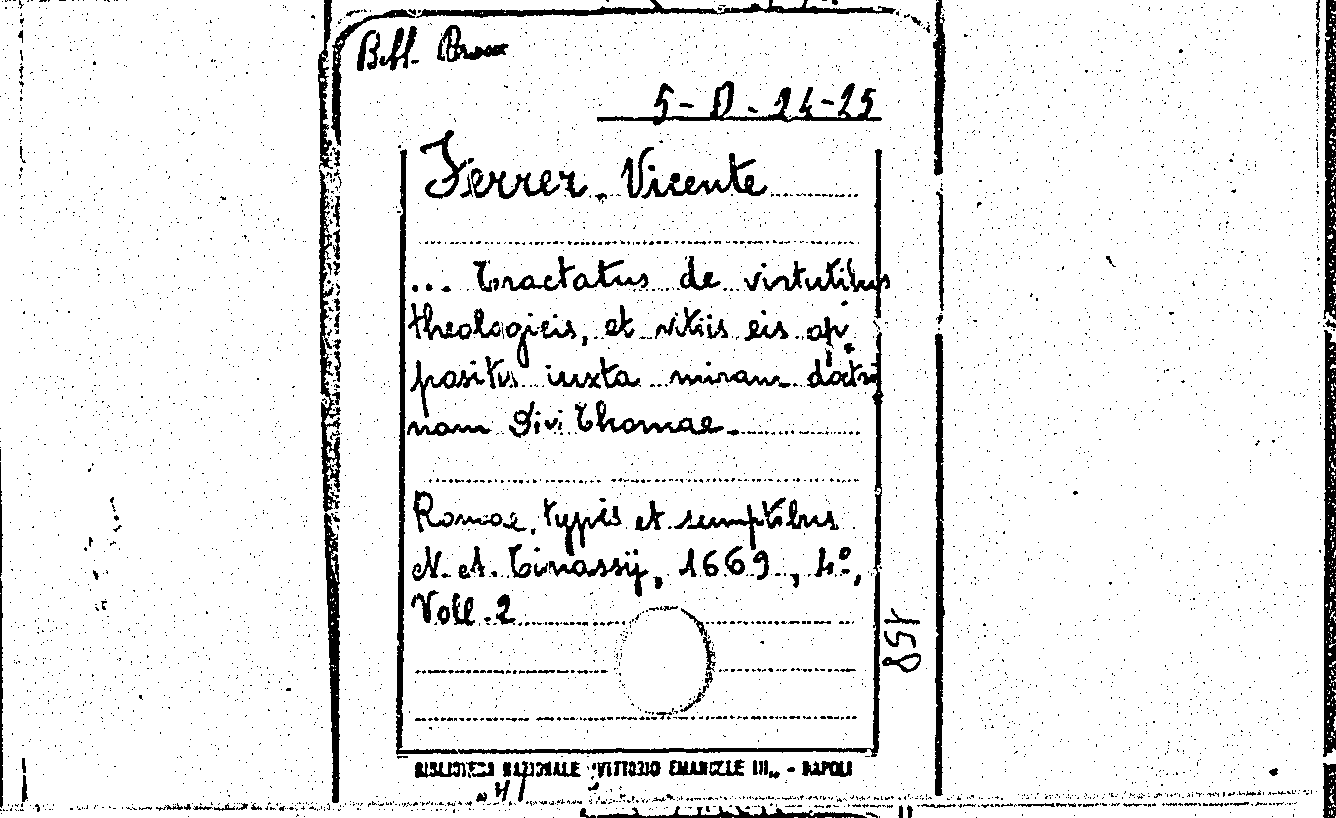 5-D-24-25
Ferrer, Vicente
... Tractatus de virtutibus
theologicis, et vitiis eis op
positis iuxta miram doctri
nam Divi Thomae.
Romae, typis et sumptibus
N. A. Tinassij, 1669, 4º,
Voll. 2
158
BIBLIOTECA NAZIONALE "VITTORIO EMANUELE III„ - NAPOLI